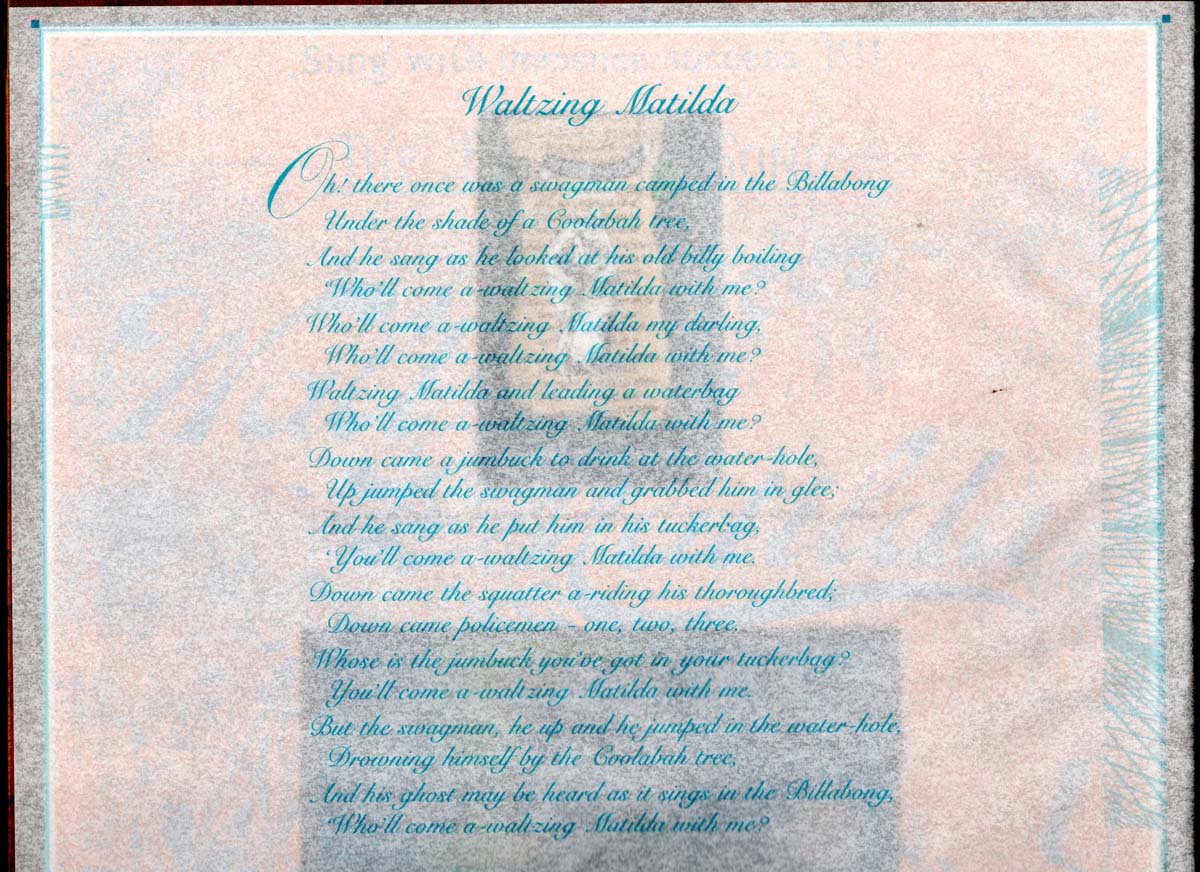 Sung with immense success !!!!
Waltzing Matilda
Oh! there once was a swagman camped in the Billabong
Under the shade of a Coolabah tree,
And he sang as he looked at his old billy boiling
'Who'll come a-waltzing Matilda with me?
Who'll come a-waltzing Matilda my darling,
Who'll come a-waltzing Matilda with me?
Waltzing Matilda and leading a waterbag
Who'll come a-waltzing Matilda with me?
Down came a jumbuck to drink at the water-hole,
Up jumped the swagman and grabbed him in glee;
And he sang as he put him in his tuckerbag,
'You'll come a-waltzing Matilda with me.
Down came the squatter a-riding his thoroughbred;
Down came policemen - one, two, three.
Whose is the jumbuck you've got in your tuckerbag?
You'll come a-waltzing Matilda with me.
But the swagman, he up and he jumped in the water-hole,
Drowning himself by the Coolabah tree,
And his ghost may be heard as it sings in the Billabong,
'Who'll come a-waltzing Matilda with me?